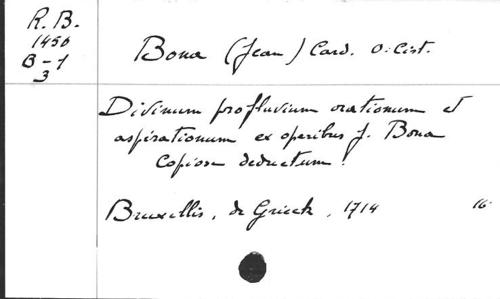 R. B.
1456
B-1
3
Bona (Jean) Card. O. Cist.
Divinum profluvium orationum et
aspirationum ex operibus J. Bona
Copiose deductum!
Bruxellis, de Grieck, 1714 16